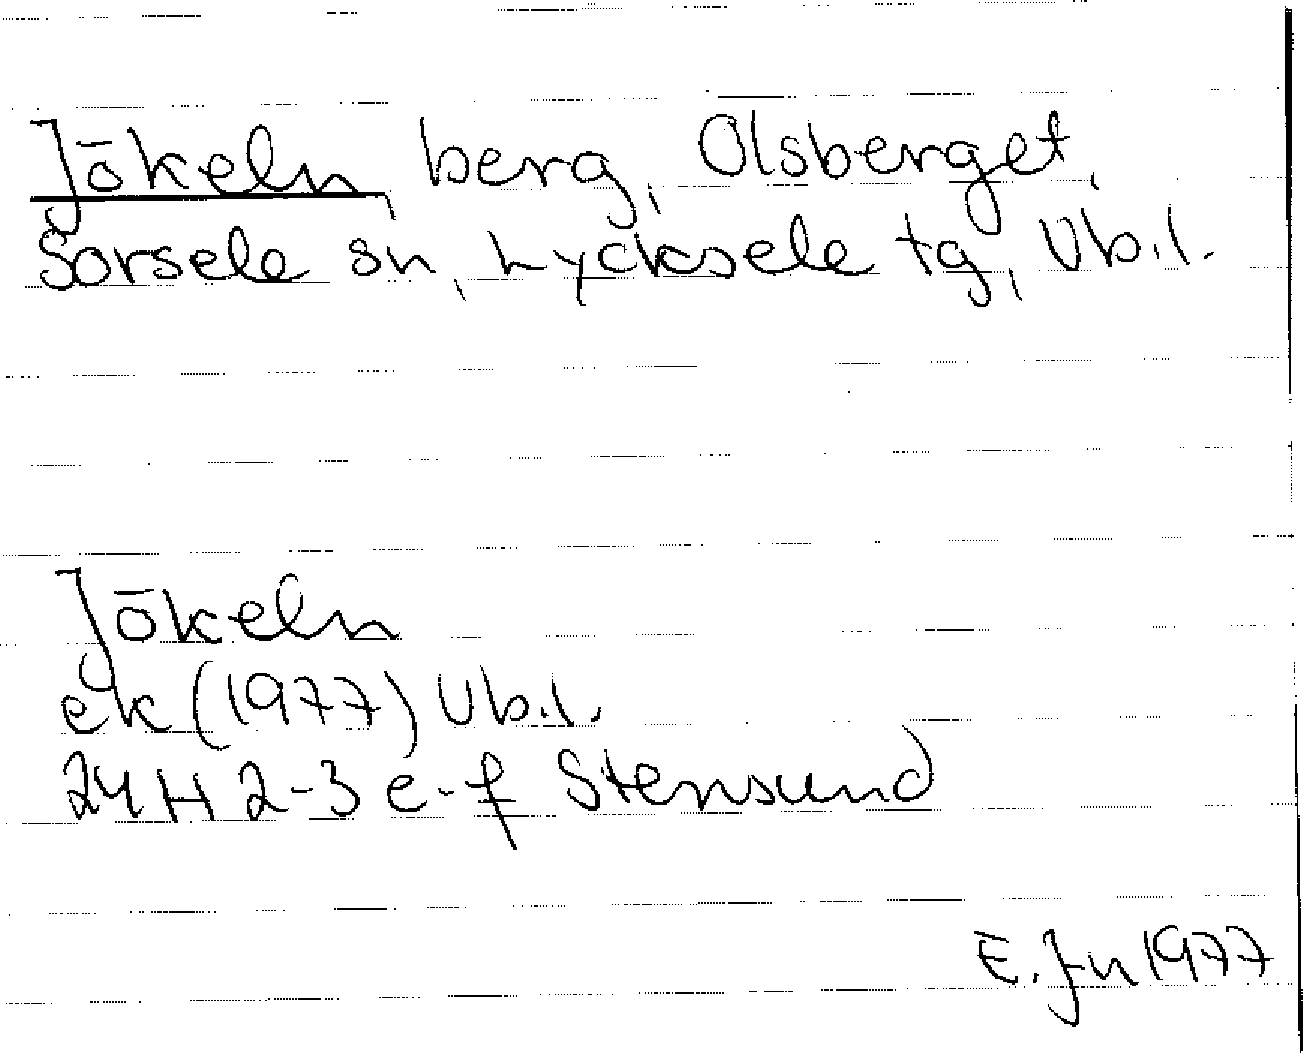 Jökeln, berg, Olsberget,
Sorsele sn, Lycksele tg, Vb.l.
Jökeln
ek (1977) Vb.l.
24 H 2-3 e-f Stensund
E. Jn 1977